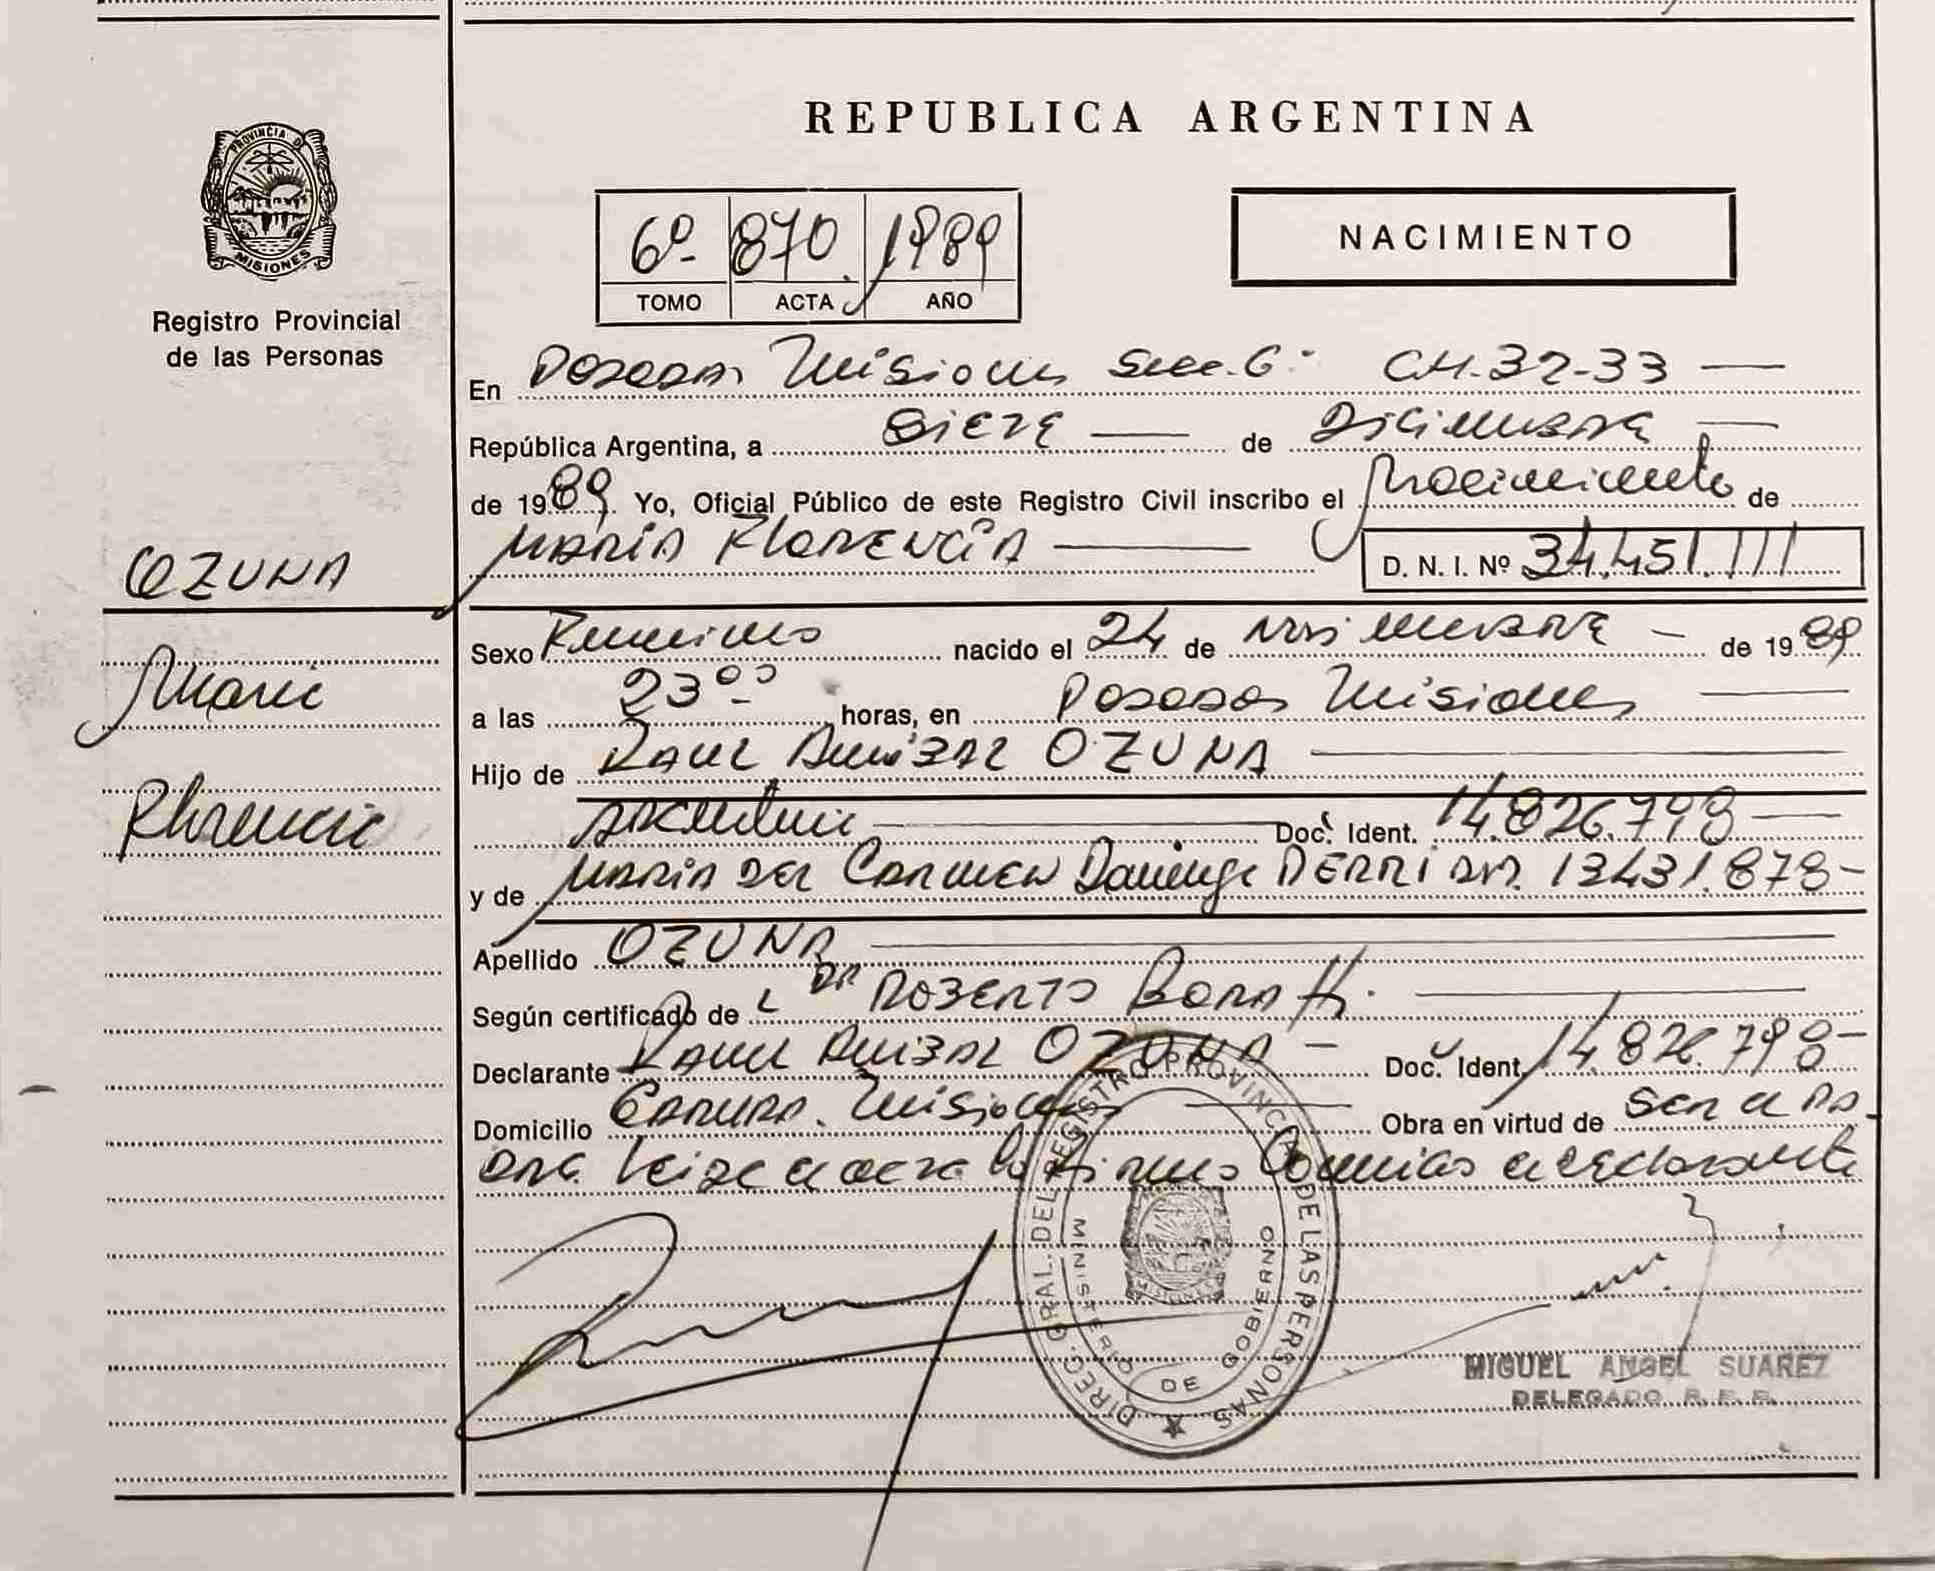 REPUBLICA ARGENTINA
PROVINCIA DE MISIONES
Registro Provincial
de las Personas
6º 870 1989
TOMO ACTA AÑO
NACIMIENTO
En Posadas Misiones Secc. 6ª CH. 32-33
República Argentina, a Siete de Diciembre
de 1989 Yo, Oficial Público de este Registro Civil inscribo el Nacimiento de
María Florencia D. N. I. Nº 34.451.111
OZUNA
María
Florencia
Sexo Femenino nacido el 24 de Noviembre de 1989
a las 23⁰⁰ horas, en Posadas Misiones
Hijo de Raul Anibal OZUNA
Argentina Doc. Ident. 14.826.798
y de María del Carmen 13431.878
Apellido OZUNA
Según certificado de Dr Roberto
Declarante Raul Anibal OZUNA Doc. Ident. 14.826.798
Domicilio Misiones Obra en virtud de ser el pa-
dre. Leida el acta la firma Conmigo el declarante
DIREC. GRAL. DEL REGISTRO PROVINCIAL DE LAS PERSONAS
MINISTERIO DE GOBIERNO
MIGUEL ANGEL SUAREZ
DELEGADO